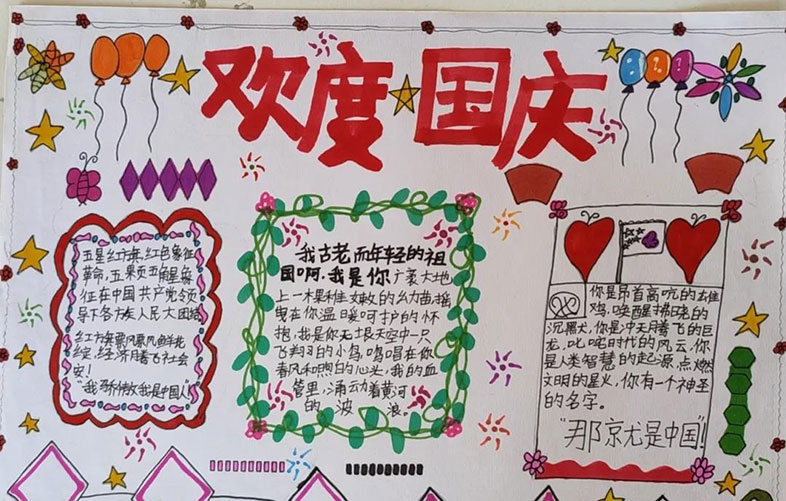 欢度国庆
五星红旗，红色象征
革命，五颗五角星象
征在中国共产党领
导下各族人民大团结
红旗飘飘风展鲜花
绽，经济腾飞社会
安！
"我骄傲我是中国人"
我古老而年轻的祖
国啊，我是你广袤大地
上一棵稚嫩的幼苗摇
曳在你温暖呵护的怀
抱，我是你无垠天空中一只
飞翔的小鸟，鸣唱在你
春风和煦的心头，我的血
管里，涌动着黄河
的波浪。
你是昂首高吭的雄
鸡，唤醒拂晓的
沉黑，你是冲天腾飞的巨
龙，叱咤时代的风云，你
是人类智慧的起源，点燃
文明的星火，你有一个神圣
的名字。
"那就是中国"！